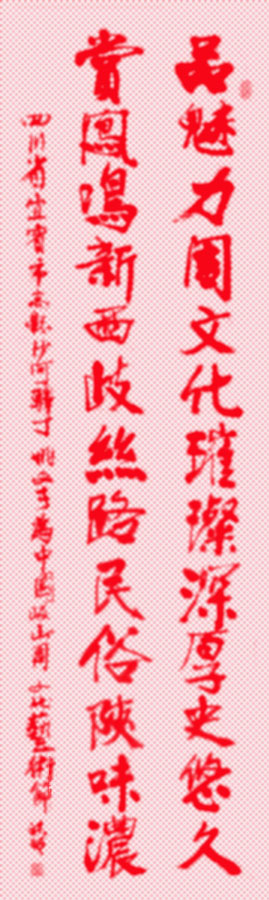 品魅力周文化璀璨深厚史悠久
赏鳳鳴新西岐絲路民俗陝味濃
四川省宜賓市高縣沙河驛丁 為中國岐山周文化藝術節